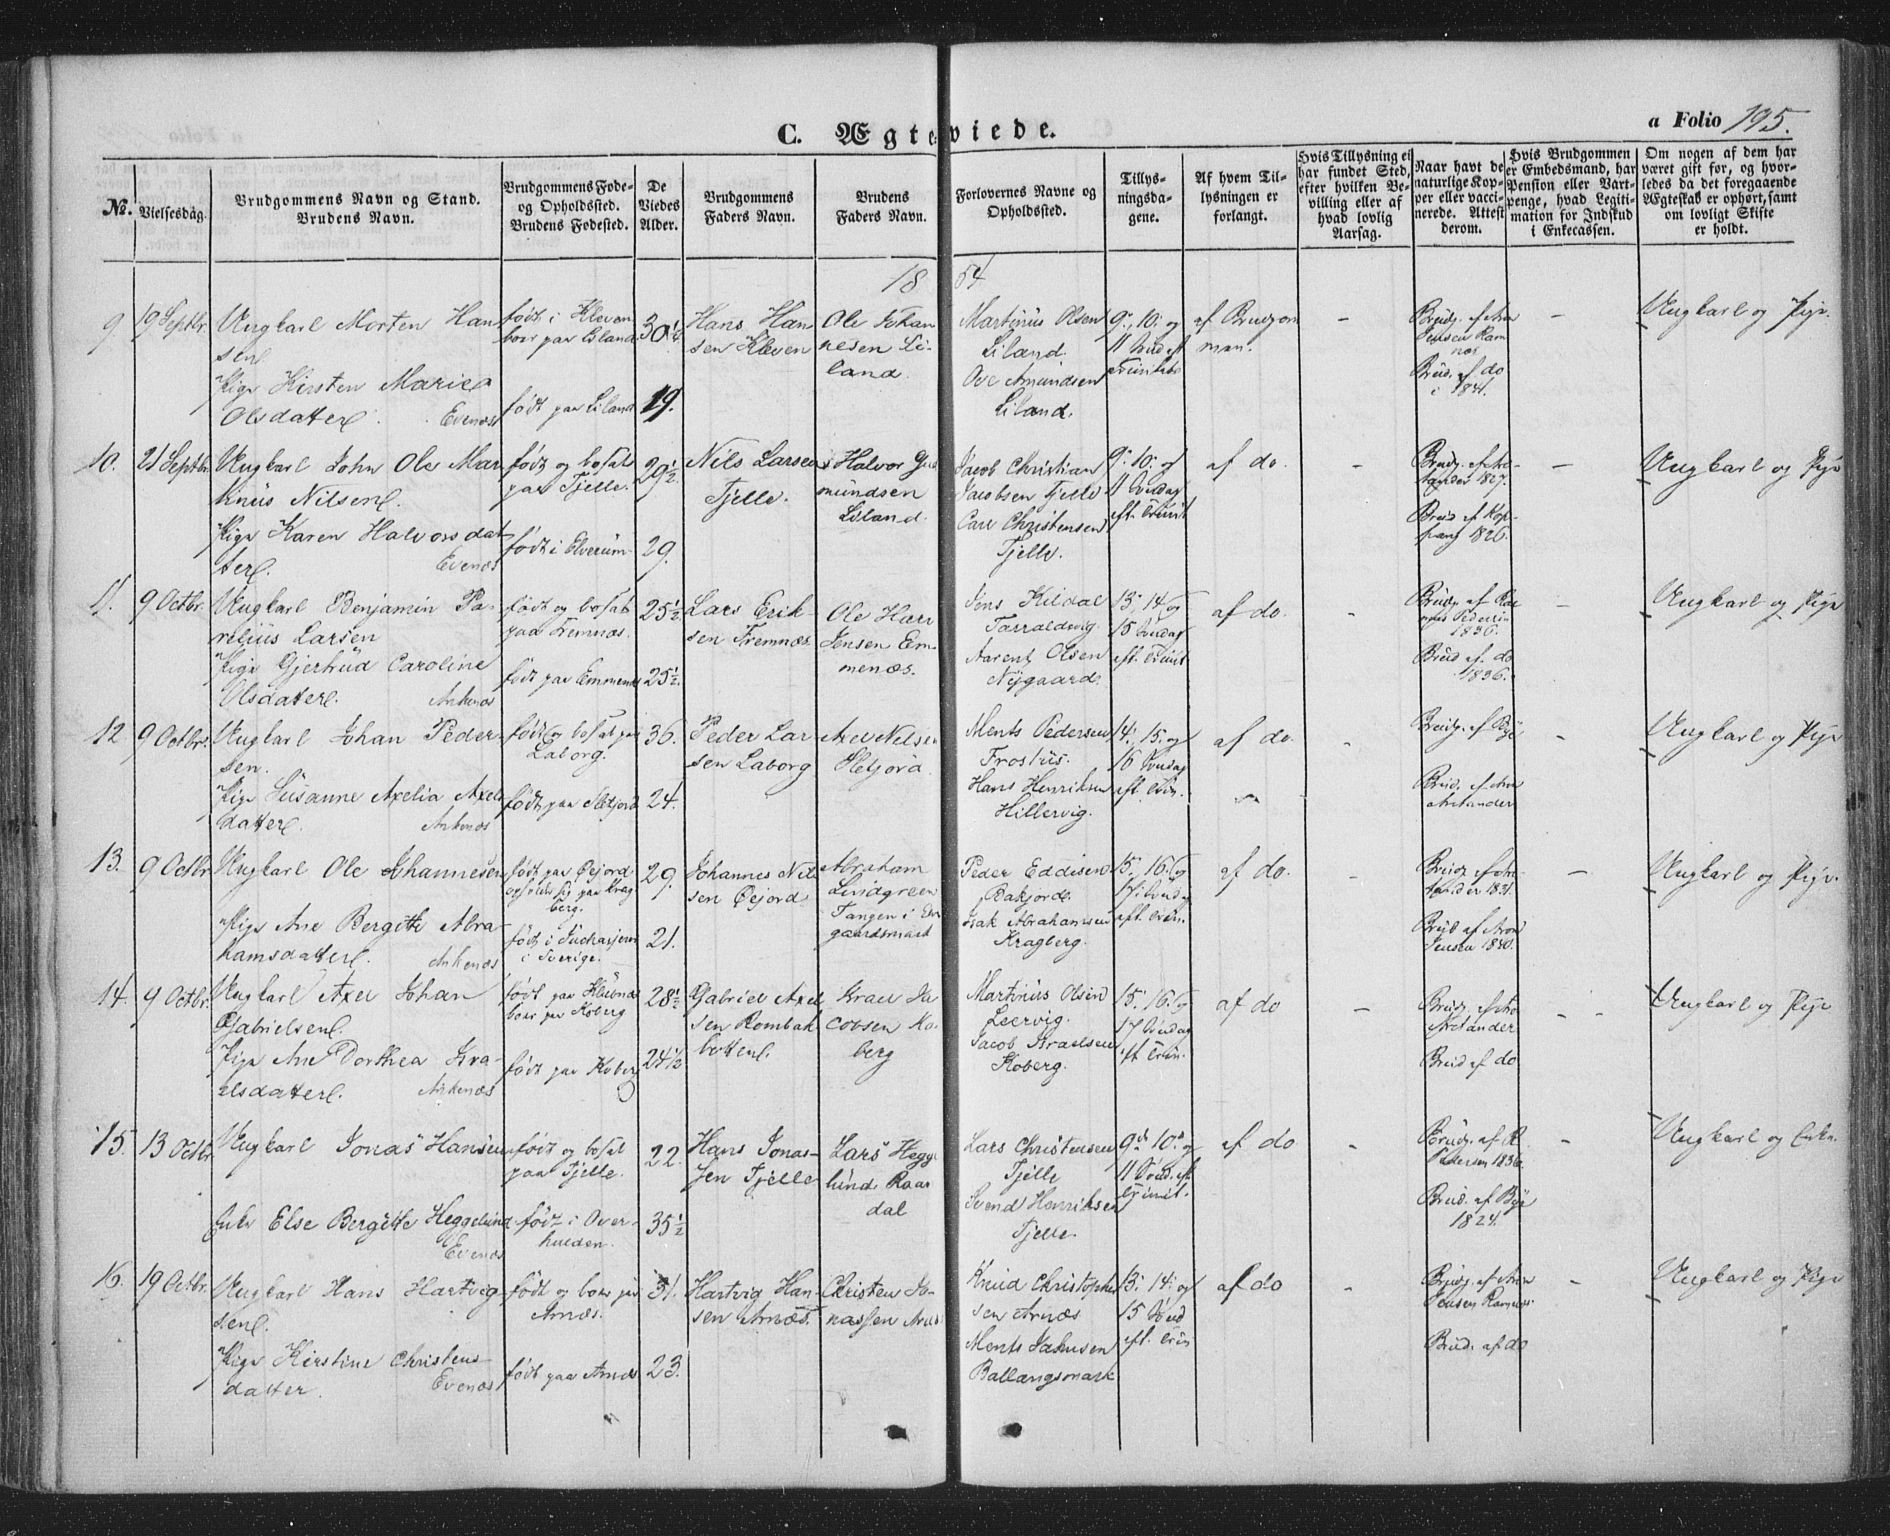 C. Ægteviede.
a Folio 195.
No.
Vielsesdag.
Brudgommens Navn og Stand.
Brudens Navn.
Brudgommens Føde-
og Opholdssted.
Brudens Fødested.
De
Viedes
Alder.
Brudgommens
Faders Navn.
Brudens
Faders Navn.
Forlovernes Navne og
Opholdssted.
Tillys-
ningsda-
gene.
Af hvem Til-
lysningen er
forlangt.
Hvis Tillysning ei
har fundet Sted,
efter hvilken Be-
villing eller af
hvad lovlig
Aarsag.
Naar havt de
naturlige Kop-
per eller vacci-
nerede. Attest
derom.
Hvis Brudgommen
er Embedsmand, har
Pension eller Vart-
penge, hvad Legiti-
mation for Indskud
i Enkecassen.
Om nogen af dem har
været gift før, og hvor-
ledes da det foregaaende
Ægteskab er ophørt, samt
om lovligt Skifte
er holdt.
1854
9. 19 Septbr.
Ungkarl Morten Han
sen
Pige Kirsten Marie
Olsdatter. Evenæs
født i Kleven
boer paa Liland
født paa Liland
30½
19.
Hans Han
sen Kleven
Ole Johan
nesen Li-
land.
Martinus Olsen
Liland.
Ove Amundsen
Liland.
9., 10. og
11 Sønd. eft
Trinitatis
af Brudgom
men.
–
Brudg. af Aron
Jensen Ram
næs
Brud. af do
i 1841.
–
Ungkarl og Pige.
10. 21 Septbr
Ungkarl John Ole Mar
knus Nilsen.
Pige Karen Halvorsdat
ter. Evenæs
født og bosat
paa Tjelle.
født i Elverum
29½
29.
Nils Larsen
Tjelle.
Halvor Gud
mundsen
Liland.
Jacob Christian
Jacobsen Tjelle
Carl Christensen
Tjelle.
9. 10. og
11 Søndag
eft. Trinit
af do.
–
1827.
1826.
–
Ungkarl og Pige
11. 9 Octbr.
Ungkarl Benjamin Pa-
relius Larsen
Pige Gjertrud Caroline
Olsdatter. Ankenæs
født og bosat
paa Fremnæs.
født paa Emmenæs
25½
25½.
Lars Erik-
sen Fremnæs.
Ole Han
Jensen Em-
menæs.
Jens Kildal
Taraldsvig.
Aarent Olsen
Nygaard.
13. 14. og
15 Søndag
eft. Trinit
af do.
–
1836.
Brud af do
1836.
–
Ungkarl og Pige
12 9 Octbr.
Ungkarl Johan Peder-
sen.
Pige Susanne Axelia Axels
datter. Ankenæs
født og bosat paa
Laborg.
født paa Sletjord
36.
24.
Peder Lar
sen Laborg
Axel Nilsen
Sletjord.
Ments Pedersen
Frostüs.
Hans Henriksen
Hillervig.
14. 15. og
16 Søndag
eft. Trin.
af do.
–
Brudg. af Bye
Brud. af Aron
Arntander
–
Ungkarl og Pige
13. 9 Octbr
Ungkarl Ole Johannesen
Pige Ane Bergitte Abra-
hamsdatter. Ankenæs
født paa Øejord
opholder sig paa Krag
berg.
født i Juckasjervi
i Sverige.
29.
21.
Johannes Nil
sen Øejord
Abraham
Lindgreen
Tangen i
gaardsmark
Peder Eddisen
Bakjord.
Isak Abrahamsen
Kragberg.
15. 16. og
17. Søndag
eft. Trin.
af do.
–
1831.
Brud af Aron
Jensen 1840.
–
Ungkarl og Pige.
14. 9 Octbr.
Ungkarl Axel Johan
Gabrielsen.
Pige Ane Dorthea Isra-
elsdatter. Ankenæs
født paa Klubnæs
boer paa Koberg
født paa Koberg
28½
24½
Gabriel Axel
sen Rombak
botten.
Israel Ja
cobsen Ko-
berg
Martinus Olsen
Leervig.
Jacob Israelsen
Koberg.
15. 16. og
17 Søndag
eft Trin.
af do
–
Brud af do
–
Ungkarl og Pige
15. 13 Octbr
Ungkarl Jonas Hansen
Enke Else Bergitte Heggelund
Evenæs
født og bosat
paa Tjelle.
født i Over-
halden.
22.
35½
Hans Jonas-
sen Tjelle
Lars Hegge
lund Raar
dal
Lars Christensen
Tjelle
Svend Henriksen
Tjelle.
9de 10de og
11 Sønd. eft
Trinit.
af do
–
Brudg. af R.
Pedersen 1836.
Brud. af Bye
1824.
–
Ungkarl og Enke.
16. 19 Octbr.
Ungkarl Hans Hartvig
sen.
Pige Kirstine Christens-
datter. Evenæs
født og boer paa
Arnæs.
født paa Arnæs
31.
23.
Hartvig Han-
sen Arnæs.
Christen Jo-
nassen Arnæs
Knud Christopher
sen Arnæs
Ments Jakosen
Ballangsmark
13. 14. og
15 Sønd
eft. Trin
af do
–
Brudg. af Aron
Jensen Ramnæs
Brud. af do
–
Ungkarl og Pige